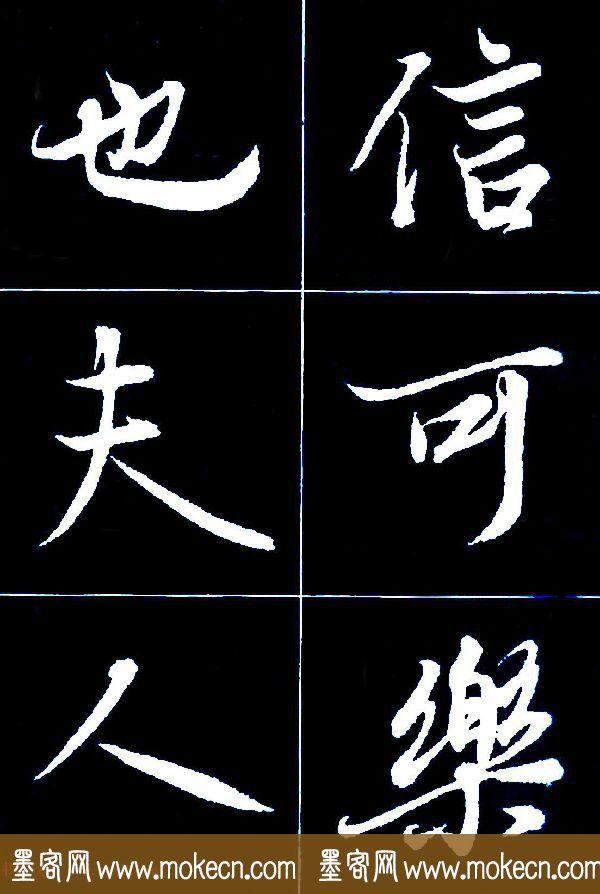 信可樂
也夫人
墨客网 www.mokecn.com 墨客网 www.mokecn.com